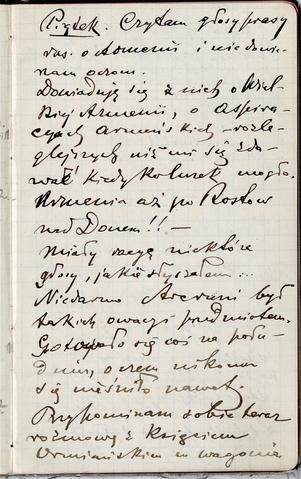 Piątek. Czytam głosy prasy
ros. o Armenii i nie dowie-
rzam oczom.
Dowiaduję się z nich o Wiel-
kiej Armenii, o aspira-
cyach armeńskich – rozle-
glejszych niż mi się zda-
wać kiedykolwiek mogło.
Armenia aż po Rostow
nad Donem!! –
Miały racyę niektóre
głosy, jakie słyszałem...
Niedarmo był
takich owacyi przedmiotem.
Gotowało się coś na połu-
dniu, o czem nikomu
się nie śniło nawet.
Przypominam sobie teraz
rozmowę z Księciem
Ormiańskim w wagonie